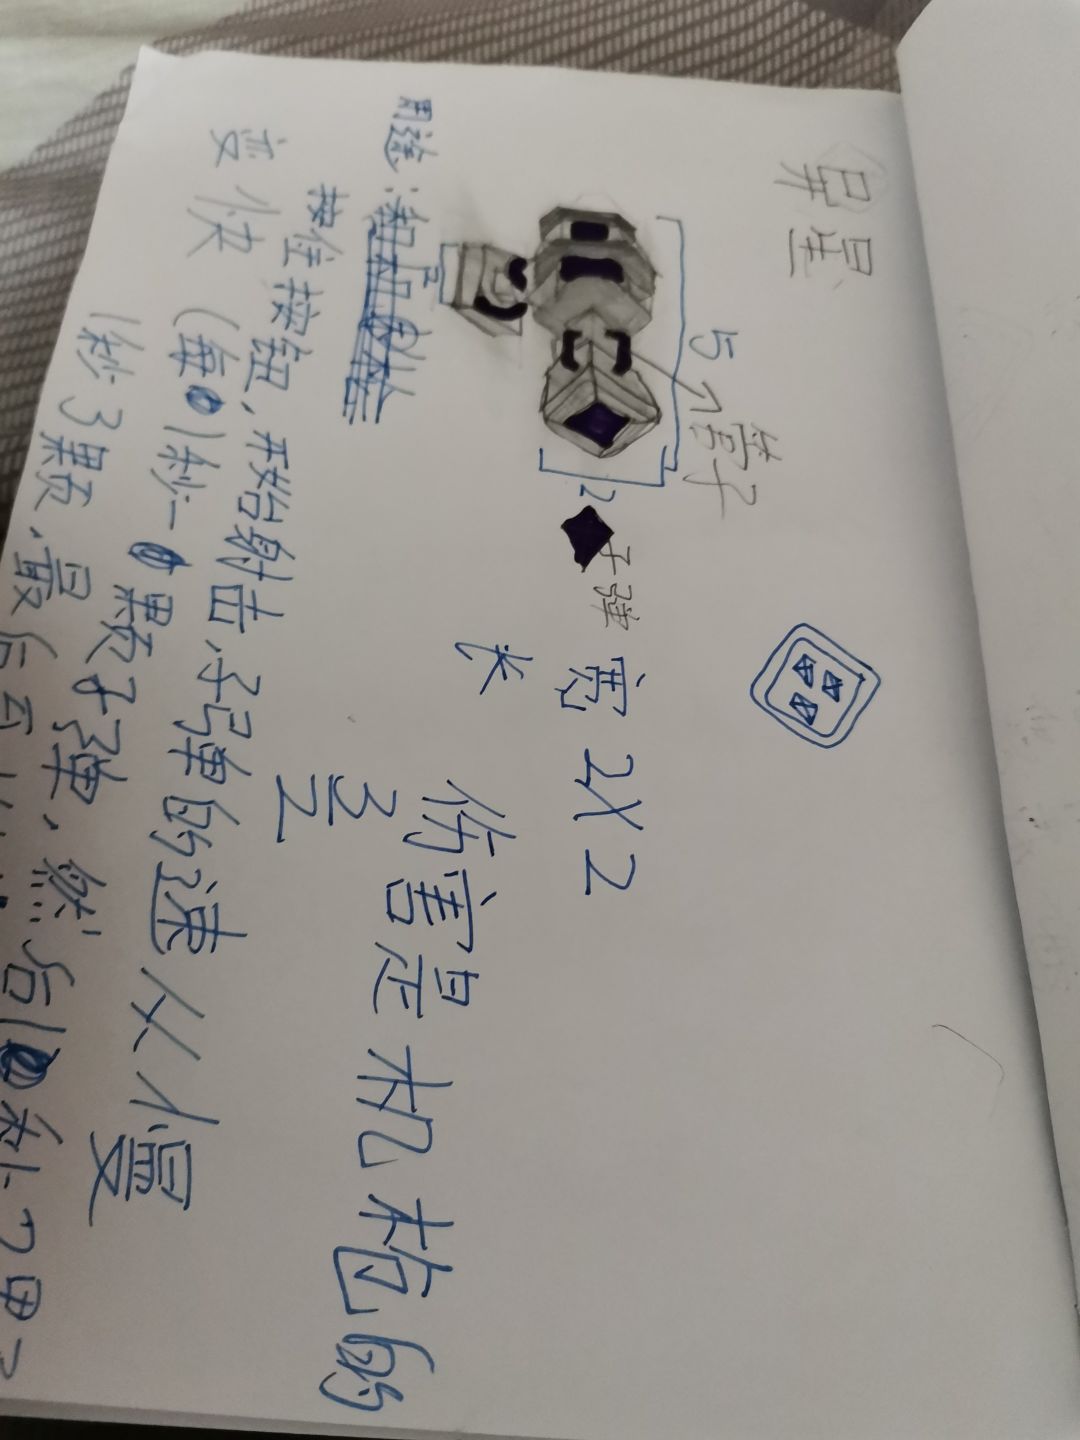 异星
5
管子
2
子弹
宽2×2
长
伤害是机枪的
3/2
用途：
按住按钮，开始射击，子弹的速从慢
变快（每1秒一颗子弹，然后1秒2
1秒3颗，最后